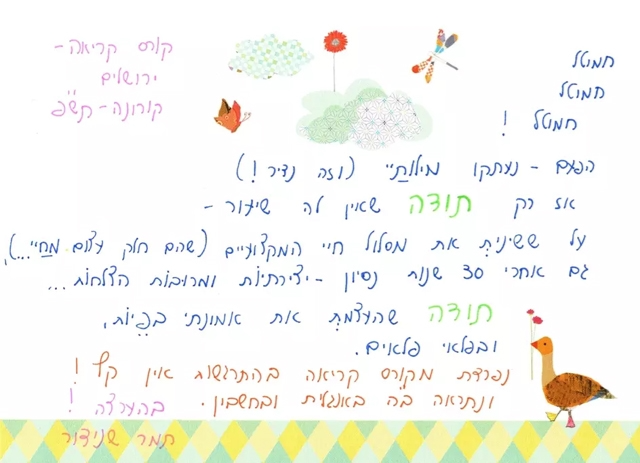 קורס קריאה-
ירושלים
קורונה-תש"פ
חמוטל
חמוטל
חמוטל !
הפעם - נעתקו מילותיי (וזה נדיר!)
אז רק תודה שאין לה שיעור -
על ששינית את מסלול חיי המקצועיים (שהם חלק עצום מחיי...),
גם אחרי 30 שנות נסיון - יצירתיות ומרובות הצלחות...
תודה שהעצמת את אמונתי בכפיות,
ובפלאי פלאים.
נפרדת מקורס קריאה בהתרגשות אין קץ!
ונתראה בה באנגלית ובחשבון.
בהערצה !
תמר שנידור